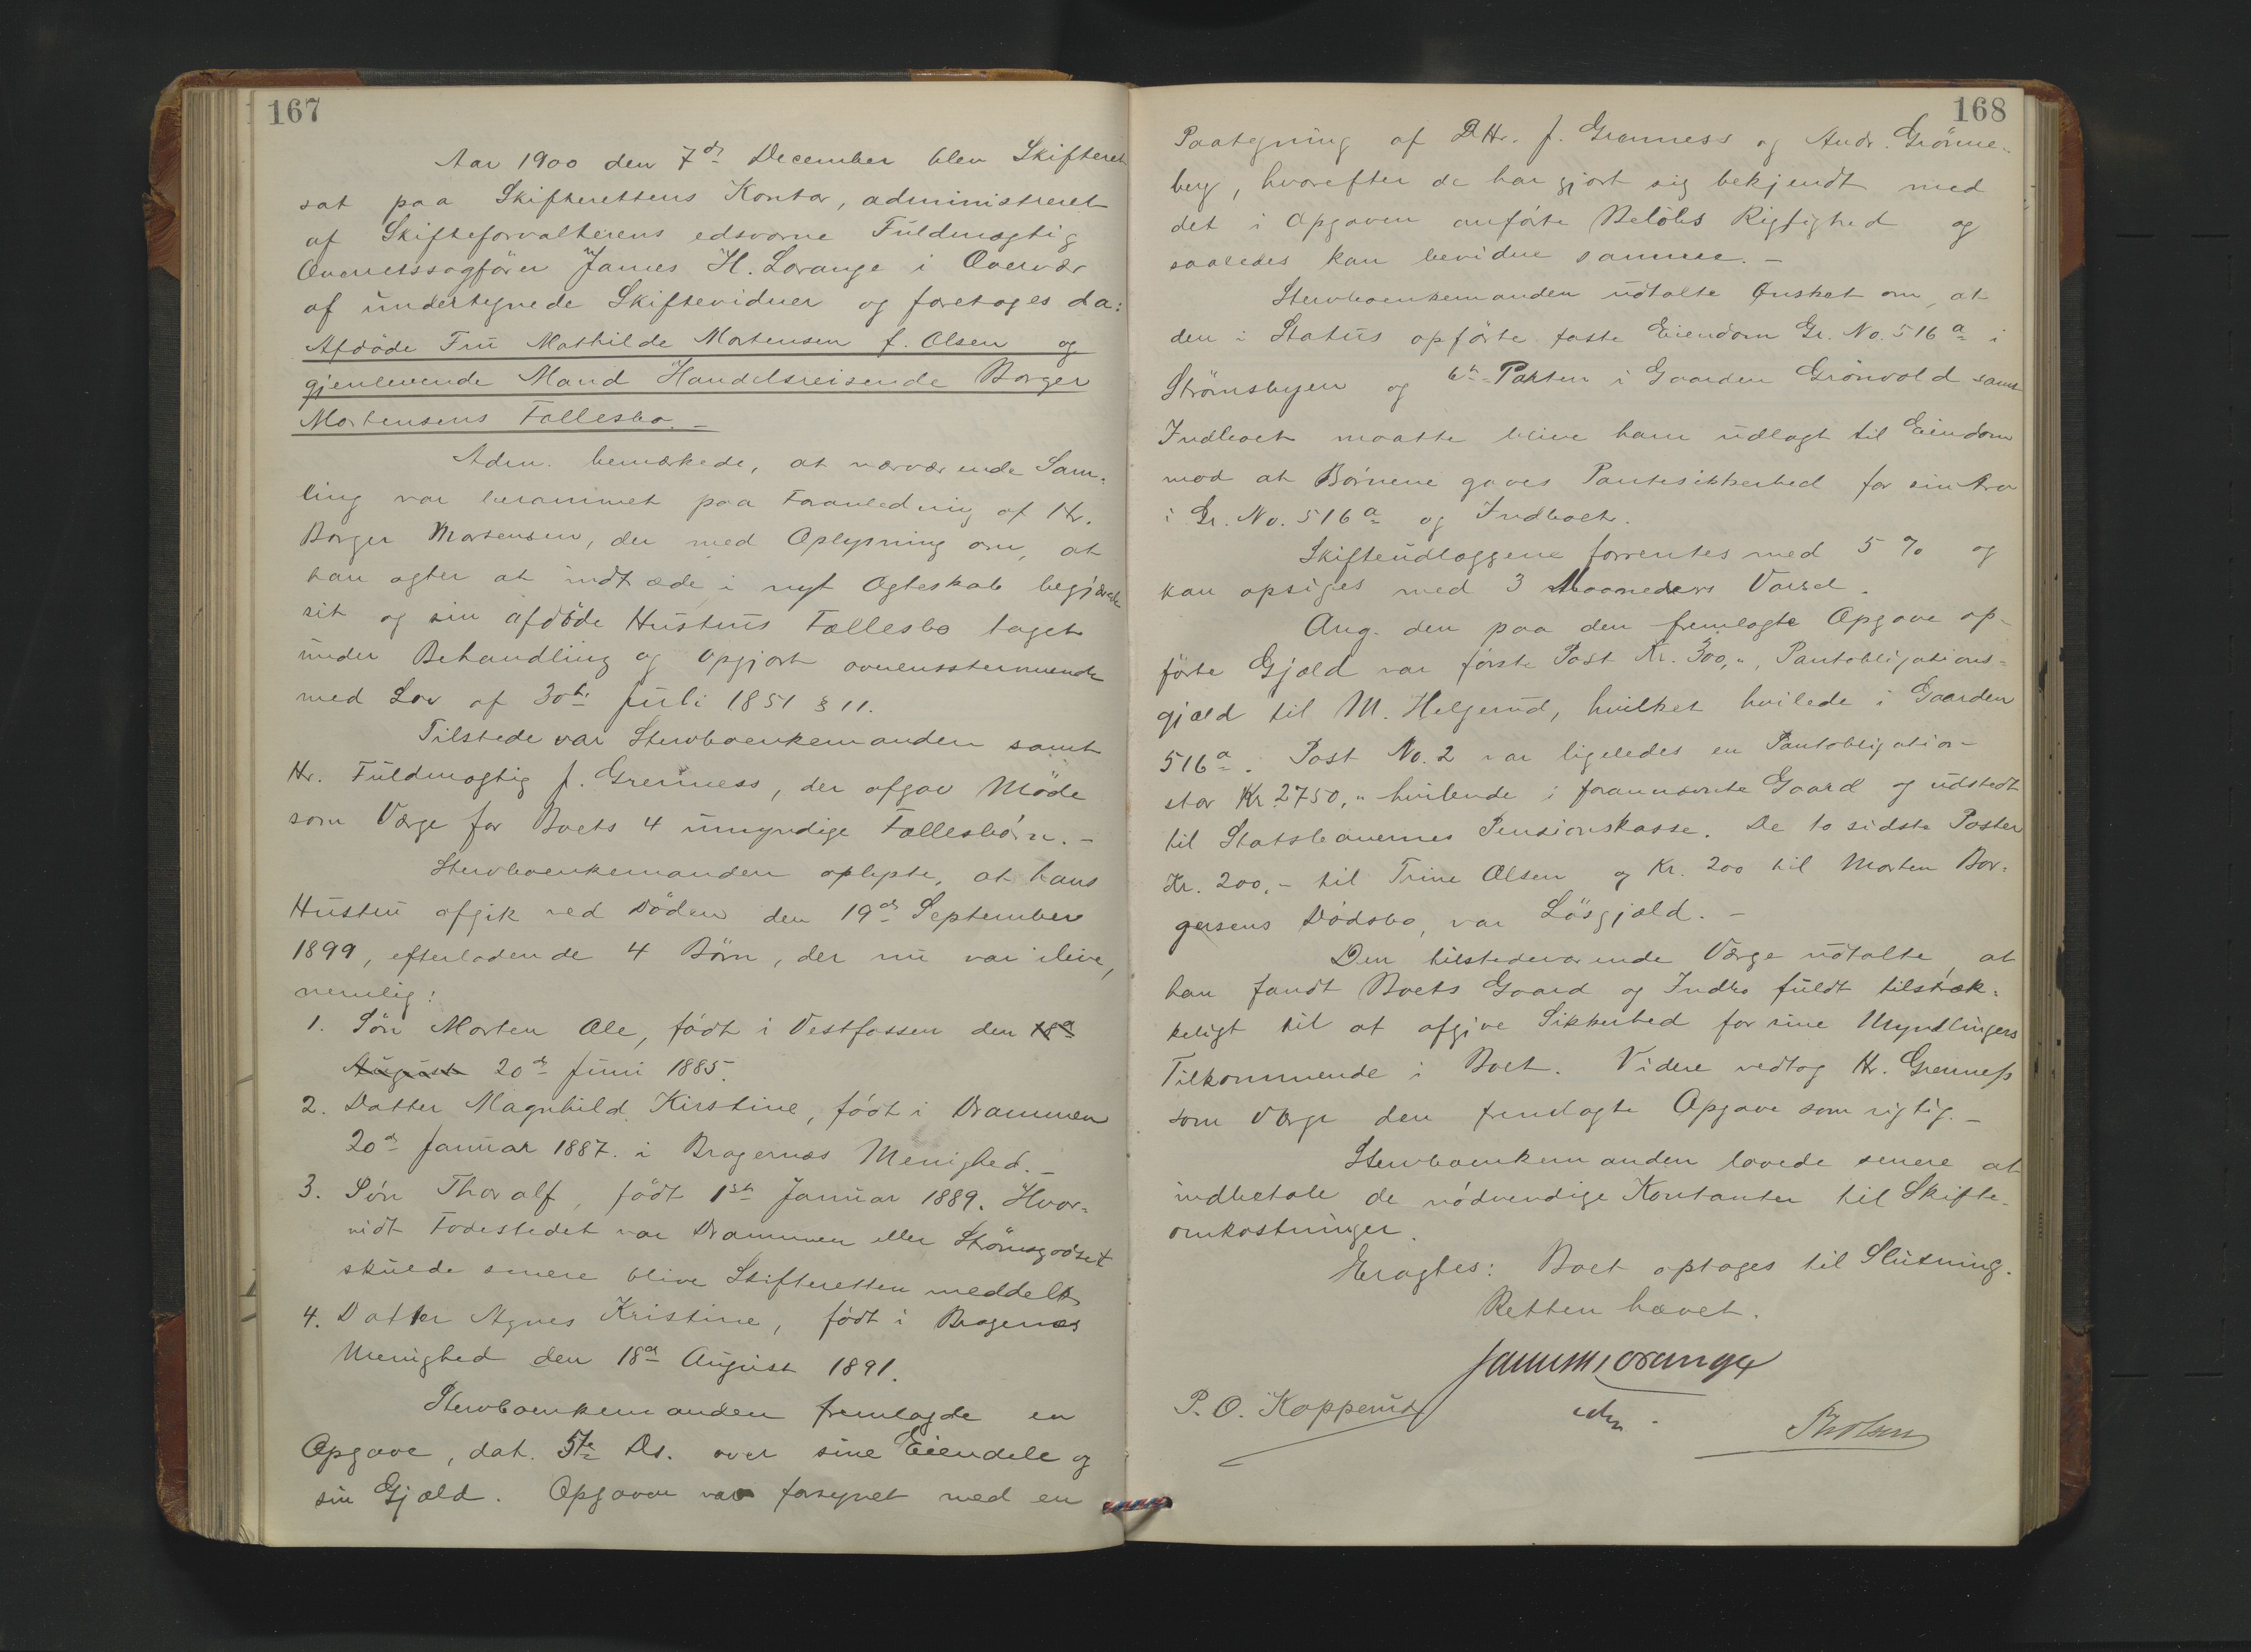 167
Aar 1900 den 7de December blev Skifteret
sat paa Skifterettens Kontor, administreret
af Skifteforvalterens edsvorne Fuldmægtig
Overretssagfører James H. Lorange i Overvær
af undertegnede Skiftevidner og foretoges da:
Afdøde Fru Mathilde Mortensen f. Olsen og
gjenlevende Mand Handelsreisende Borger
Mortensens Fællesbo.-
Adm. bemærkede, at nærværende Sam-
ling var berammet paa Foranledning af Hr.
Borger Mortensen, der med Oplysning om, at
han agter at indtræde i nyt Ægteskab begjærede
sit og sin afdøde Hustrus Fællesbo taget
under Behandling og opgjort overensstemmende
med Lov af 30te Juli 1851 § 11.
Tilstede var Stervboenkemanden samt
Hr. Fuldmægtig J. Grenness, der afgav Møde
som Værge for Boets 4 umyndige Fællesbørn.-
Stervboenkemanden oplyste, at hans
Hustru afgik ved Døden den 19de September
1899, efterladende 4 Børn, der nu var ilive,
nemlig:
1. Søn Morten Ole, født i Vestfossen den 18de
August 20de Juni 1885.
2. Datter Magnhild Kirstine, født i Drammen
20de Januar 1887. i Bragernæs Menighed.-
3. Søn Thoralf, født 1ste Januar 1889. Hvor-
vidt Fødestedet var Drammen eller Strømsgodset
skulde senere blive Skifteretten meddelt
4. Datter Agnes Kristine, født i Bragernæs
Menighed den 18de August 1891.
Stervboenkemanden fremlagde en
Opgave, dat. 5te Ds. over sine Eiendele og
sin Gjæld. Opgaven var forsynet med en
168
Paategning af D'Hr. J. Grenness og Andr. Grønne-
berg, hvorefter de har gjort sig bekjendt med
det i Opgaven anførte Beløbs Rigtighed og
saaledes kan bevidne samme.-
Stervboenkemanden udtalte Ønsket om, at
den i Status opførte faste Eiendom Gr. No. 516a i
Strømsbyen og 6te Parten i Gaarden Grønvold samt
Indboet maatte blive ham udlagt til Eiendom
mod at Børnene gaves Pantesikkerhed for sin Arv
i Gr. No. 516a og Indboet.
Skifteudlæggene forrentes med 5 % og
kan opsiges med 3 Maaneders Varsel.
Ang. den paa den fremlagte Opgave op-
førte Gjæld var første Post Kr. 300,", Pantobligations-
gjæld til M. Helgerud, hvilket hvilede i Gaarden
516a. Post No. 2 var ligeledes en Pantobligation-
stor Kr. 2750," hvilende i forannævnte Gaard og udstedt
til Statsbanernes Pensionskasse. De to sidste Poster
Kr. 200.- til Trine Olsen og Kr. 200 til Morten Bor-
gersens Dødsbo, var Løsgjæld.-
Den tilstedeværende Værge udtalte, at
han fandt Boets Gaard og Indbo fuldt tilstræk-
keligt til at afgive Sikkerhed for sine Myndlingers
Tilkommende i Boet. Videre vedtog Hr. Grenness
som Værge den fremlagte Opgave som rigtig.-
Stervboenkemanden lovede senere at
indbetale de nødvendige Kontanter til Skifte-
omkostninger.
Eragtes: Boet optages til Slutning.
Retten hævet.
James H Lorange
P. O. Kopperud
edsv.